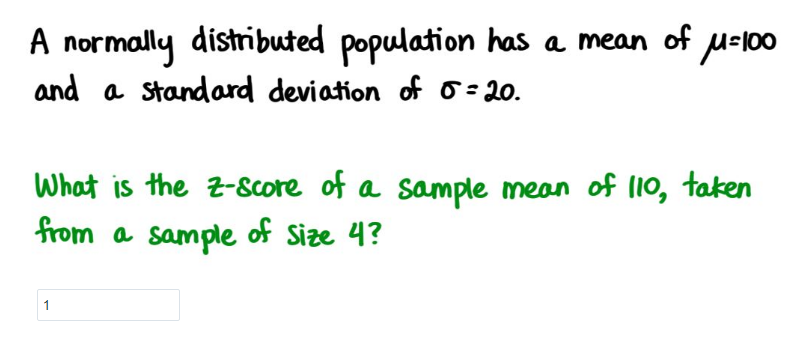 A normally distributed population has a mean of μ=100
and a standard deviation of σ=20.
What is the z-score of a sample mean of 110, taken
from a sample of size 4?
1